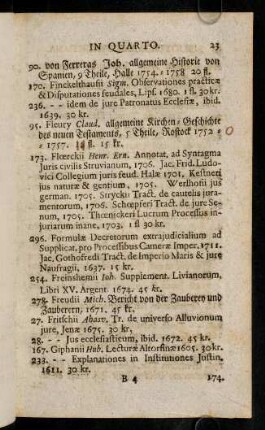 IN QUARTO. 23
90. von Ferreras Joh. allgemeine Historie von
Spanien, 9 Theile, Halle 1754. - 1758 20 fl.
170. Finckelthausii Sigm. Observationes practicæ
& Disputationes feudales, Lips. 1680. 1 fl. 30 kr.
236. - - idem de jure Patronatus Ecclesiæ, ibid.
1639. 30 kr.
95. Fleury Claud. allgemeine Kirchen-Geschichte
des neuen Testaments, 5 Theile, Rostock 1752 -
- 1757. fl. 15 kr.
173. Flœrckii Henr. Ern. Annotat. ad Syntagma
Juris civilis Struvianum, 1706. Jac. Frid. Ludo-
vici Collegium juris feud. Halæ 1701. Kestneri
jus naturæ & gentium, 1705. Werlhofii jus
german. 1705. Strycki Tract. de cautelis jura-
mentorum, 1706. Schœpferi Tract. de jure Se-
num, 1705. Thœnickeri Lucrum Processus in-
juriarum inane, 1703. 1 fl 30 kr,
296. Formulæ Decretorum extrajudicialium ad
Supplicat. pro Processibus Cameræ Imper. 1711.
Jac. Gothofredi Tract. de Imperio Maris & jure
Naufragii, 1637. 15 kr.
254. Freinshemii Joh. Supplement. Livianorum,
Libri XV. Argent. 1674. 45 kr.
278. Freudii Mich. Bericht von der Zauberey und
Zauberern, 1671. 45 kr.
27. Fritschii Ahasv. Tr. de universo Alluvionum
jure, Jenæ 1675. 30 kr,
28. - - Jus ecclesiasticum, ibid. 1672. 45 kr.
167. Giphanii Hub. Lecturæ Altorfinæ 1605. 30 kr.
233. - - Explanationes in Institutiones Justin.
1611. 30 kr.
B 4 174.